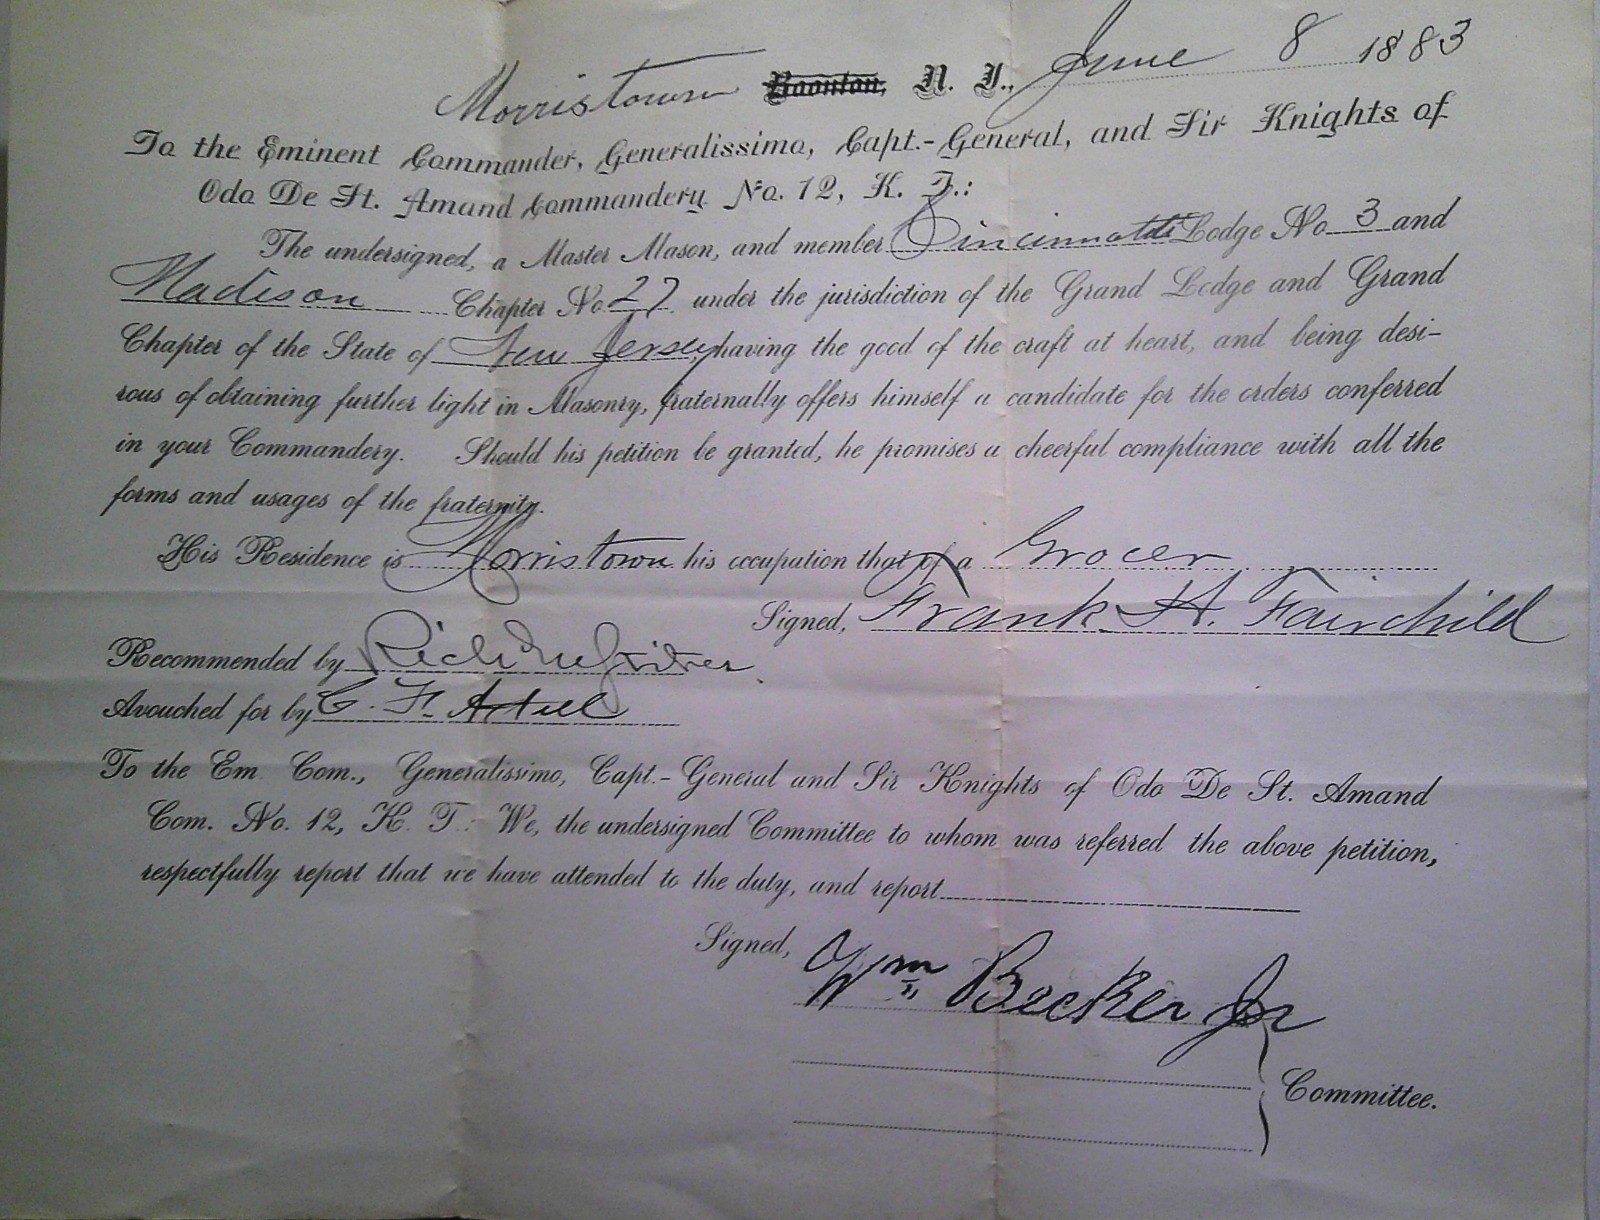 Morristown Boonton, N. J., June 8 1883
To the Eminent Commander, Generalissimo, Capt.-General, and Sir Knights of
Odo De St. Amand Commandery No. 12, K. T.:
The undersigned, a Master Mason, and member Cincinnati Lodge No 3 and
Madison Chapter No. 27 under the jurisdiction of the Grand Lodge and Grand
Chapter of the State of New Jersey having the good of the craft at heart, and being desi-
rous of obtaining further light in Masonry, fraternally offers himself a candidate for the orders conferred
in your Commandery. Should his petition be granted, he promises a cheerful compliance with all the
forms and usages of the fraternity.
His Residence is Morristown his occupation that of a Grocer
Signed, Frank H. Fairchild
Recommended by
Avouched for by C. F. Axtell
To the Em. Com., Generalissimo, Capt.-General and Sir Knights of Odo De St. Amand
Com. No. 12, K. T.: We, the undersigned Committee to whom was referred the above petition,
respectfully report that we have attended to the duty, and report
Signed,
Wm Becker Jr
Committee.